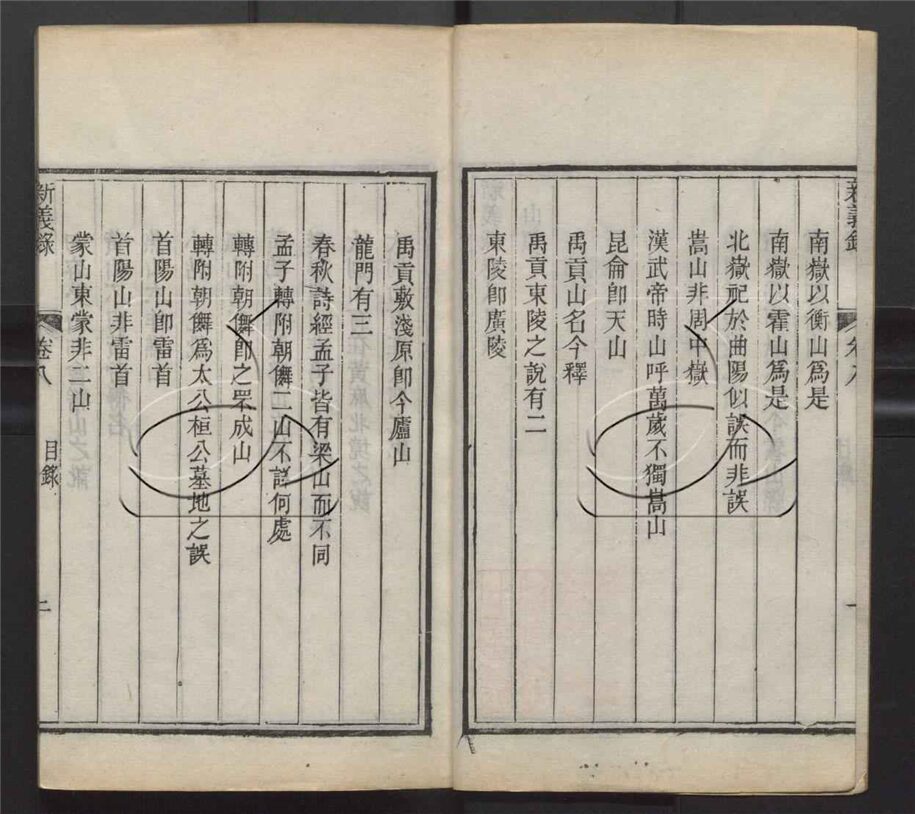 新義錄
卷八
一
南嶽以衡山爲是
南嶽以霍山爲是
北嶽祀於曲陽似誤而非誤
嵩山非周中嶽
漢武帝時山呼萬歲不獨嵩山
昆侖卽天山
禹貢山名今釋
禹貢東陵之說有二
東陵卽廣陵
禹貢敷淺原卽今廬山
龍門有三
春秋詩經孟子皆有梁山而不同
孟子轉附朝儛二山不詳何處
轉附朝儛卽之罘成山
轉附朝儛爲太公桓公墓地之誤
首陽山卽雷首
首陽山非雷首
蒙山東蒙非二山
新義錄
卷八
目錄
二